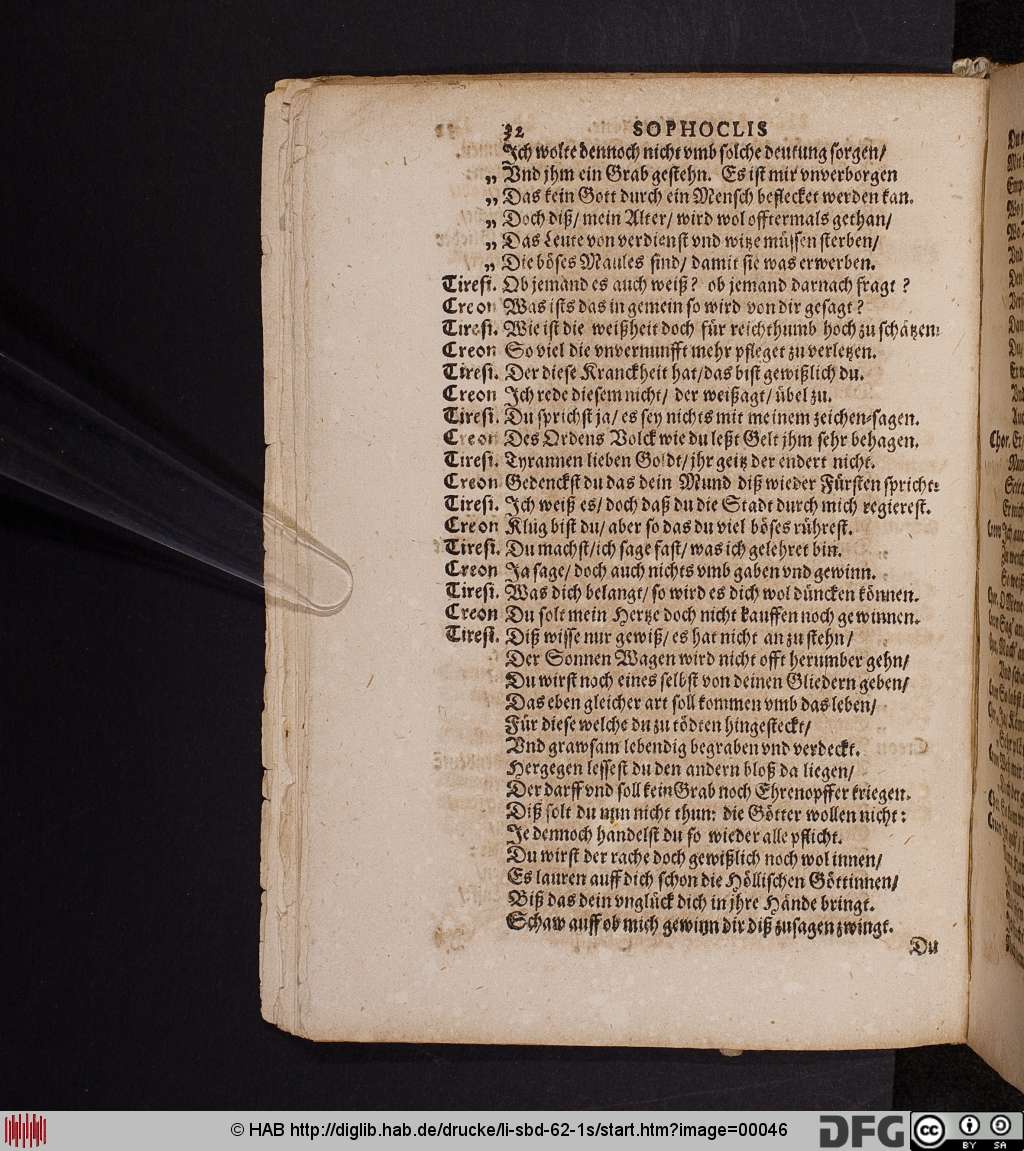 32 SOPHOCLIS
Ich wolte dennoch nicht vmb solche deutung sorgen/
„ Vnd jhm ein Grab gestehn. Es ist mir vnverborgen
„ Das kein Gott durch ein Mensch beflecket werden kan.
„ Doch diß/ mein Alter/ wird wol offtermals gethan/
„ Das Leute von verdienst vnd witze müssen sterben/
„ Die böses Maules sind/ damit sie was erwerben.
Tiresi. Ob jemand es auch weiß? ob jemand darnach fragt?
Creon Was ists das in gemein so wird von dir gesagt?
Tiresi. Wie ist die weißheit doch für reichthumb hoch zu schätzen:
Creon So viel die vnvernunfft mehr pfleget zu verletzen.
Tiresi. Der diese Kranckheit hat/das bist gewißlich du.
Creon Ich rede diesem nicht/ der weißagt/ übel zu.
Tiresi. Du sprichst ja/ es sey nichts mit meinem zeichen-sagen.
Creon Des Ordens Volck wie du leßt Gelt jhm sehr behagen.
Tiresi. Tyrannen lieben Goldt/ jhr geitz der endert nicht.
Creon Gedenckst du das dein Mund diß wieder Fürsten spricht:
Tiresi. Ich weiß es/ doch daß du die Stadt durch mich regierest.
Creon Klug bist du/ aber so das du viel böses rührest.
Tiresi. Du machst/ich sage fast/ was ich gelehret bin.
Creon Ja sage/ doch auch nichts vmb gaben vnd gewinn.
Tiresi. Was dich belangt/ so wird es dich wol düncken können.
Creon Du solt mein Hertze doch nicht kauffen noch gewinnen.
Tiresi. Diß wisse nur gewiß/ es hat nicht an zu stehn/
Der Sonnen Wagen wird nicht offt herumber gehn/
Du wirst noch eines selbst von deinen Gliedern geben/
Das eben gleicher art soll kommen vmb das leben/
Für diese welche du zu tödten hingesteckt/
Vnd grawsam lebendig begraben vnd verdeckt.
Hergegen lessest du den andern bloß da liegen/
Der darff vnd soll kein Grab noch Ehrenopffer kriegen.
Diß solt du nun nicht thun: die Götter wollen nicht:
Je dennoch handelst du so wieder alle pflicht.
Du wirst der rache doch gewißlich noch wol innen/
Es lauren auff dich schon die Höllischen Göttinnen/
Biß das dein vnglück dich in jhre Hände bringt.
Schaw auff ob mich gewinn dir diß zusagen zwingt.
Du
© HAB http://diglib.hab.de/drucke/li-sbd-62-1s/start.htm?image=00046
DFG
cc BY SA